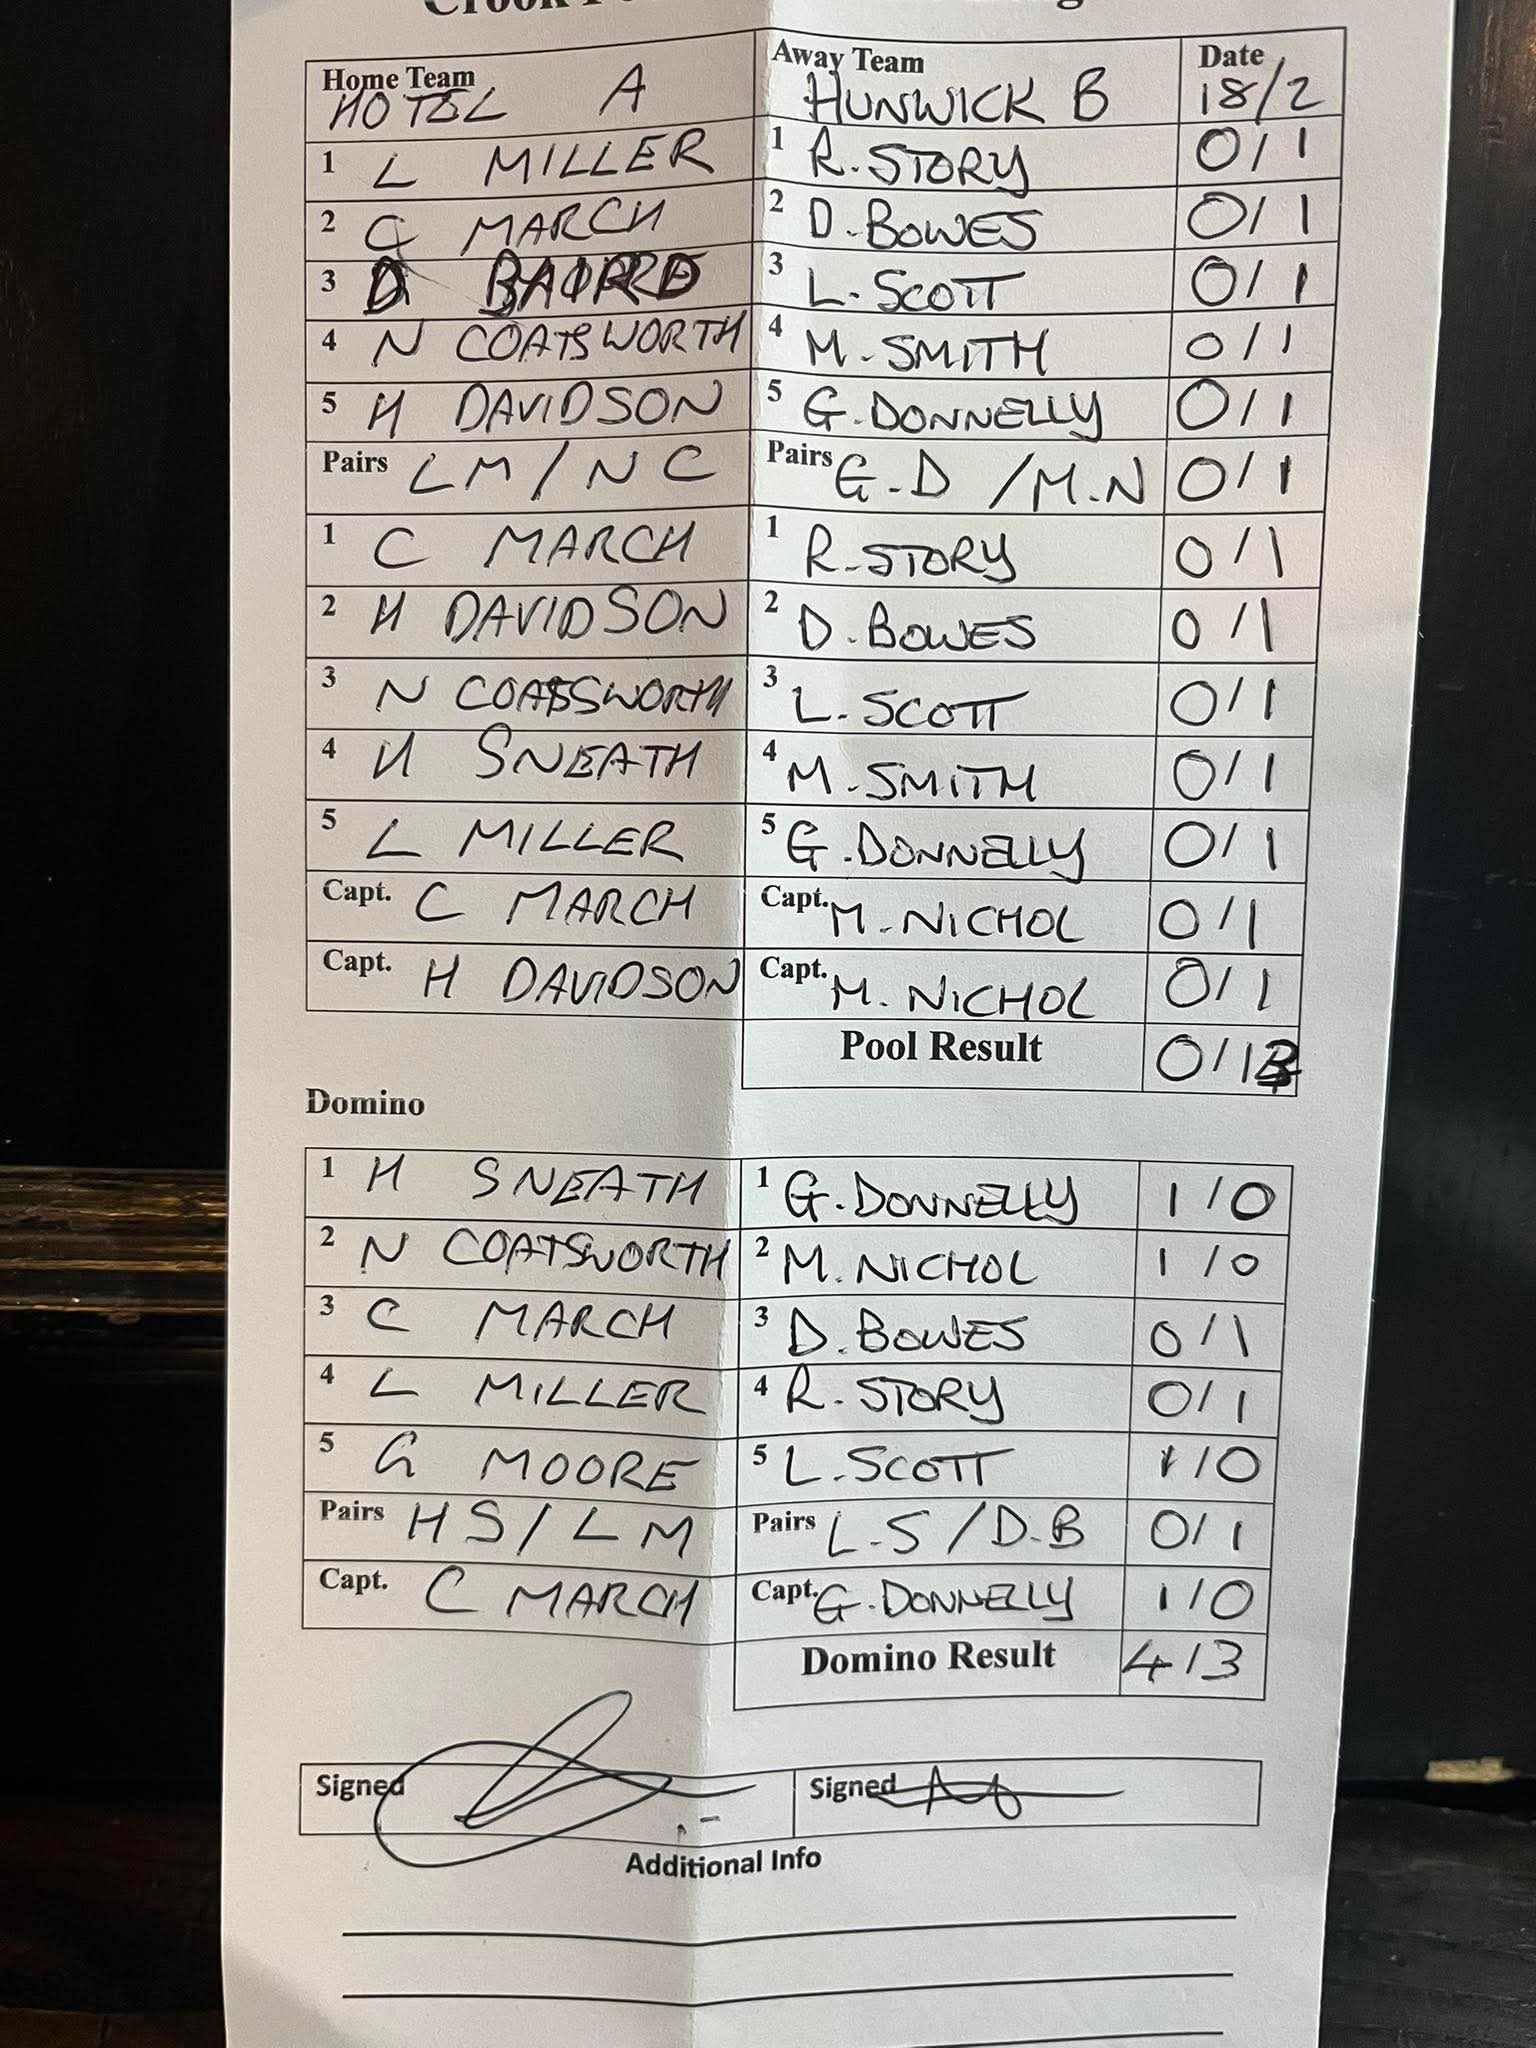 Home Team Away Team Date
HOTEL A HUNWICK B 18/2
1 L MILLER 1 R. STORY 0/1
2 C MARCH 2 D. BOWES 0/1
3 D BAIRD 3 L. SCOTT 0/1
4 N COATSWORTH 4 M. SMITH 0/1
5 H DAVIDSON 5 G. DONNELLY 0/1
Pairs LM/NC Pairs G.D/M.N 0/1
1 C MARCH 1 R. STORY 0/1
2 H DAVIDSON 2 D. BOWES 0/1
3 N COATSWORTH 3 L. SCOTT 0/1
4 H SNEATH 4 M. SMITH 0/1
5 L MILLER 5 G. DONNELLY 0/1
Capt. C MARCH Capt. M. NICHOL 0/1
Capt. H DAVIDSON Capt. M. NICHOL 0/1
Pool Result 0/13
Domino
1 H SNEATH 1 G. DONNELLY 1/0
2 N COATSWORTH 2 M. NICHOL 1/0
3 C MARCH 3 D. BOWES 0/1
4 L MILLER 4 R. STORY 0/1
5 G MOORE 5 L. SCOTT 1/0
Pairs HS/LM Pairs L.S/D.B 0/1
Capt. C MARCH Capt. G. DONNELLY 1/0
Domino Result 4/3
Signed Signed
Additional Info